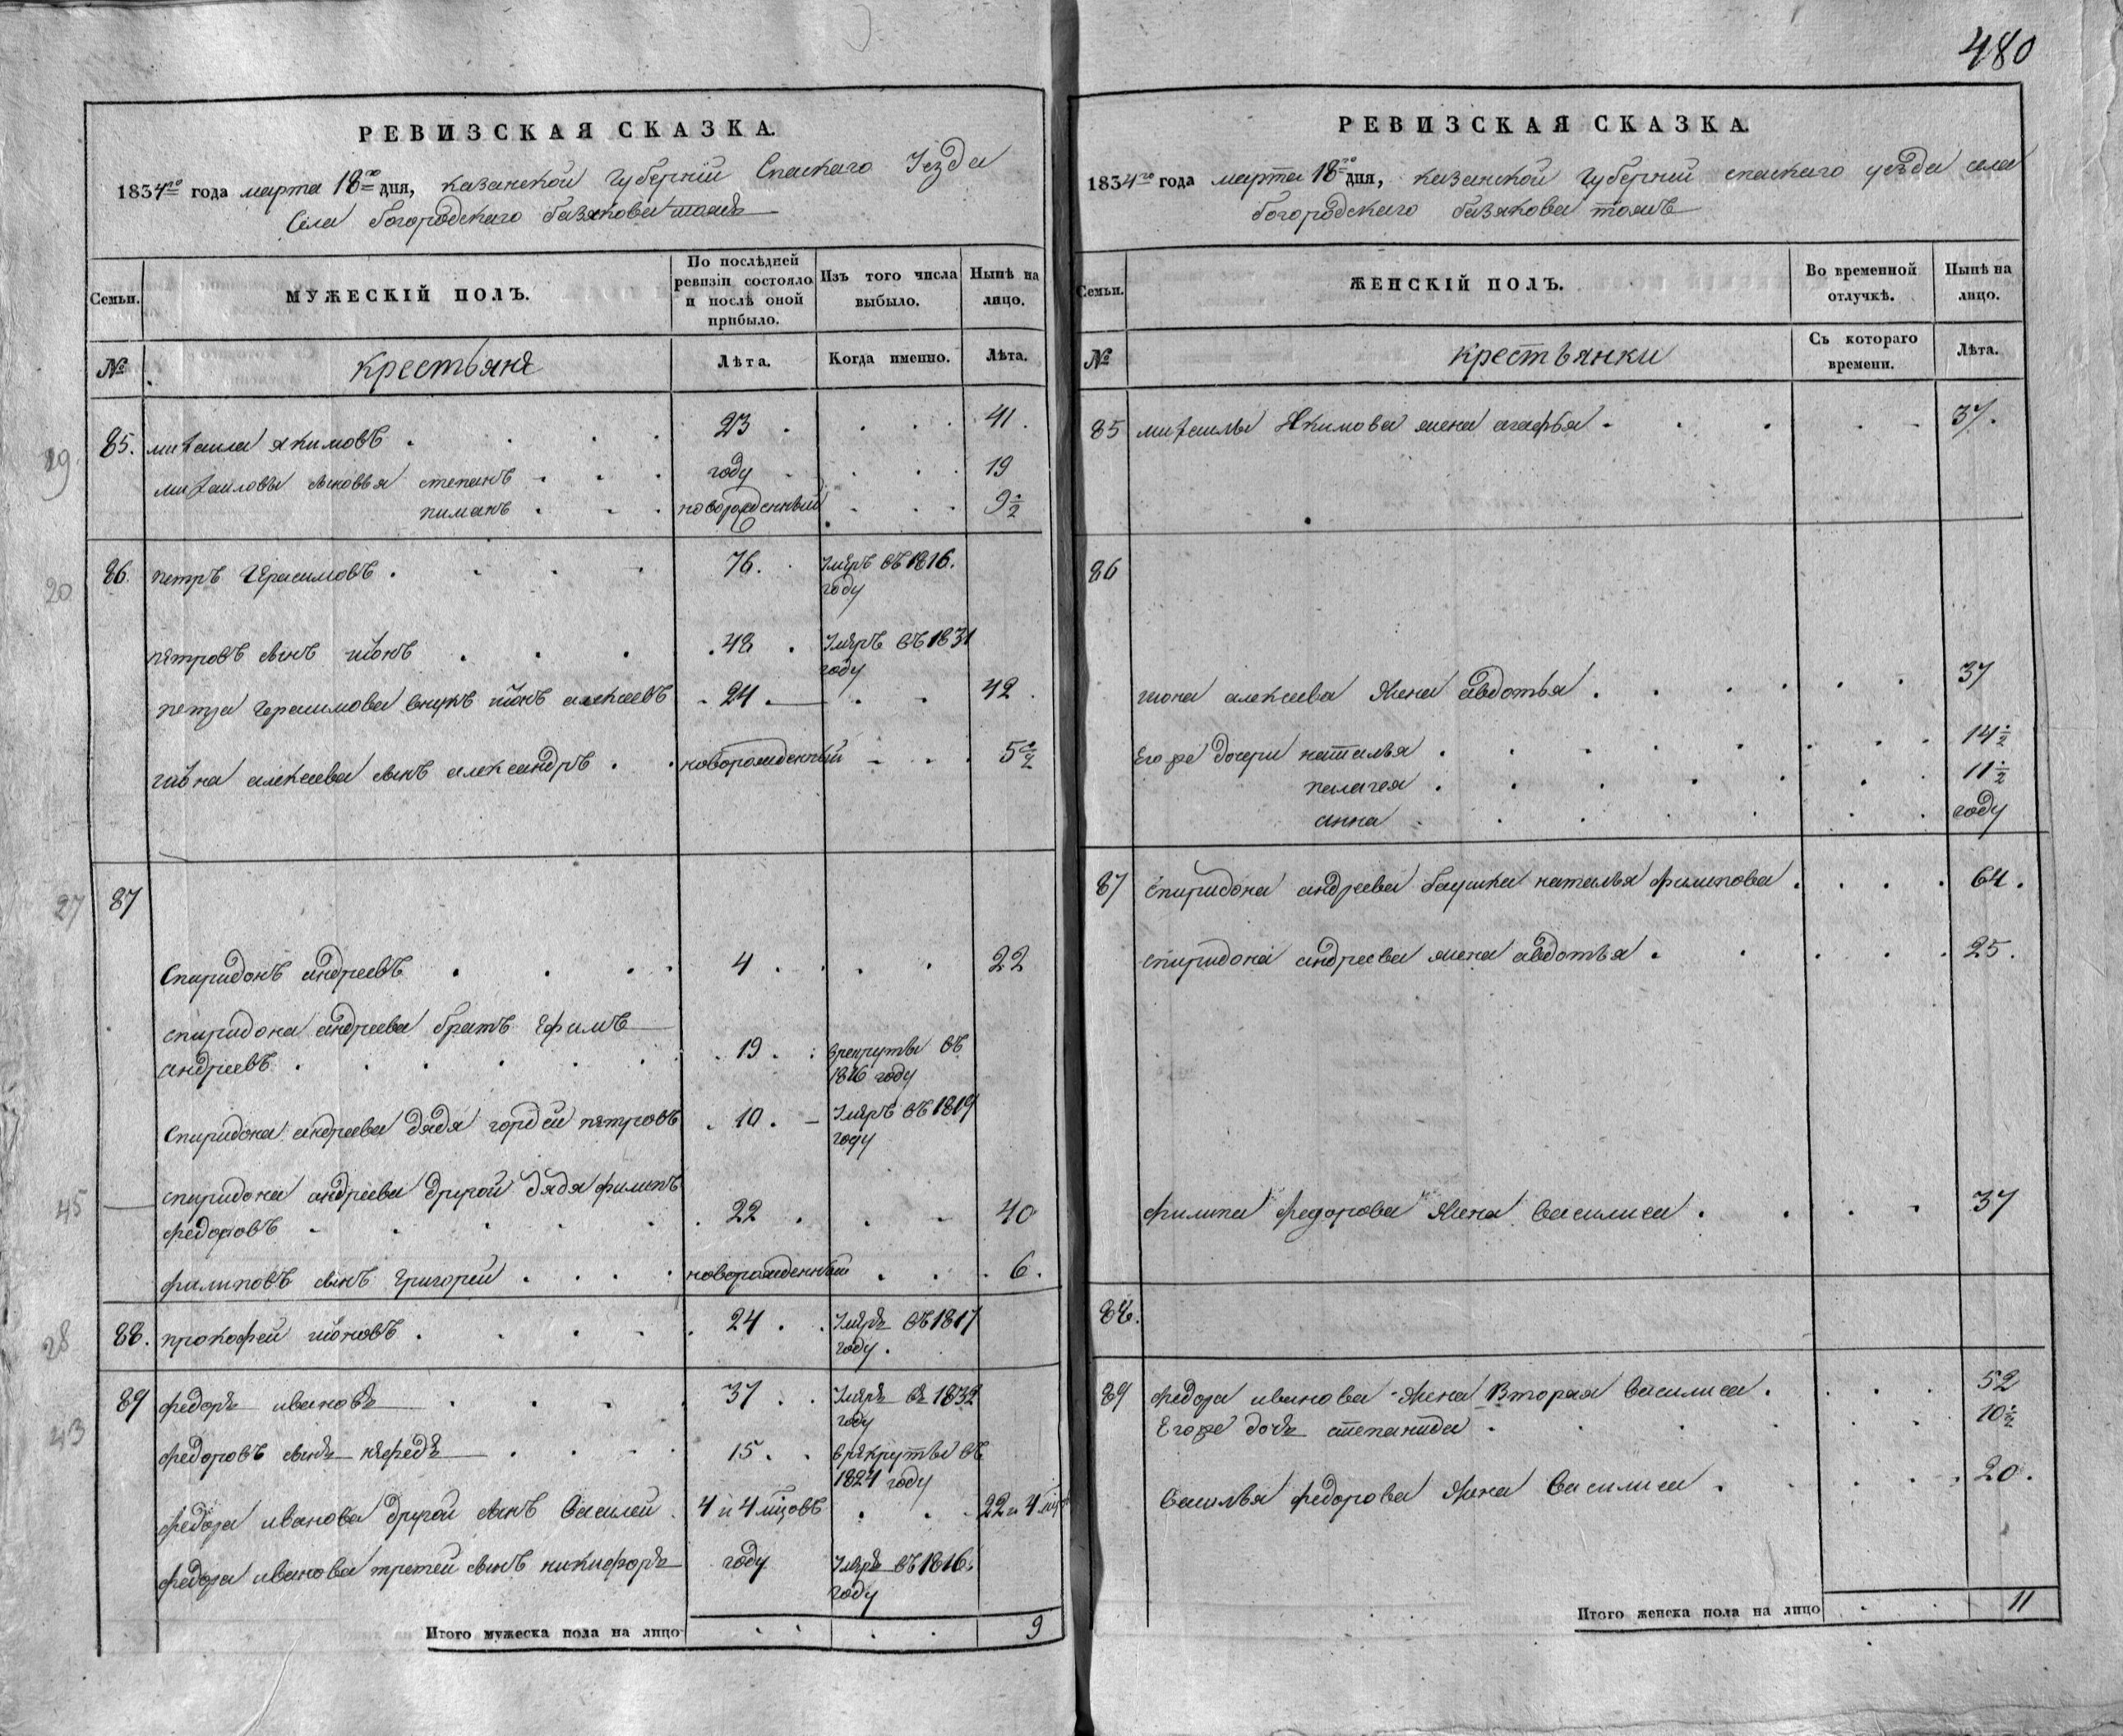 480
РЕВИЗСКАЯ СКАЗКА.
1834го года марта 18го дня, казанской Губернiи Спаскаго Уезда
Села богородскаго базяково тожъ
Семьи. МУЖЕСКIЙ ПОЛЪ. По послѣдней ревизiи состояло и послѣ оной прибыло. Изъ того числа выбыло. Нынѣ на лицо.
№ крестьяне Лѣта. Когда именно. Лѣта.
19. 85. михаила якимовъ 23 41.
михаиловы сыновья степанъ году 19
пиманъ новорожденный 9½
20 86. петръ Герасимовъ 76. Умеръ въ 1816. году
петровъ сынъ iионъ 48 Умеръ въ 1831 году
петра герасимова внукъ iионъ алексеевъ 24 42.
iиона алексеева сынъ александръ новорожденный 5½
27 87
Спиридонъ андреевъ 4 22
спиридона андреева братъ Ефимъ
андреевъ 19 врекруты въ 1816 году
Спиридона андреева дядя гордей петровъ 10 Умеръ въ 1819 году
45 спиридона андреева другой дядя филипъ
федоровъ 22 40
филиповъ сынъ Григорей новорожденный 6.
28 88. прокофей iионовъ 24 Умеръ въ 1817 году.
43 89 федоръ ивановъ 37 Умеръ въ 1832 году
федоровъ сынъ нефедъ 15. врекруты въ 1824 году
федора иванова другой сынъ Василей 4 и 4 мцовъ 22 и 4 мцо
федора иванова третей сынъ никифоръ году Умеръ въ 1816. году
Итого мужеска пола на лицо 9
РЕВИЗСКАЯ СКАЗКА.
1834го года марта 18го дня, казанской Губернiй спаскаго уезда села
богородскаго базякова тожъ
Семьи. ЖЕНСКIЙ ПОЛЪ. Во временной отлучкѣ. Нынѣ на лицо.
№ крестьянки Съ котораго времени. Лѣта.
85 михаилы Якимова жена агафья 37.
86
iиона алексеева Жена авдотья 37
Его же дочери наталья 14½
пелагея 11½
анна году
87 Спиридона андреева баушка наталья филипова 64.
спиридона андреева жена авдотья 25.
филипа федорова Жена Василиса 37
88.
89 федора иванова Жена Вторая Василиса 52
Его же дочь степанида 10½
Василья федорова Жена Василиса 20.
Итого женска пола на лицо 11